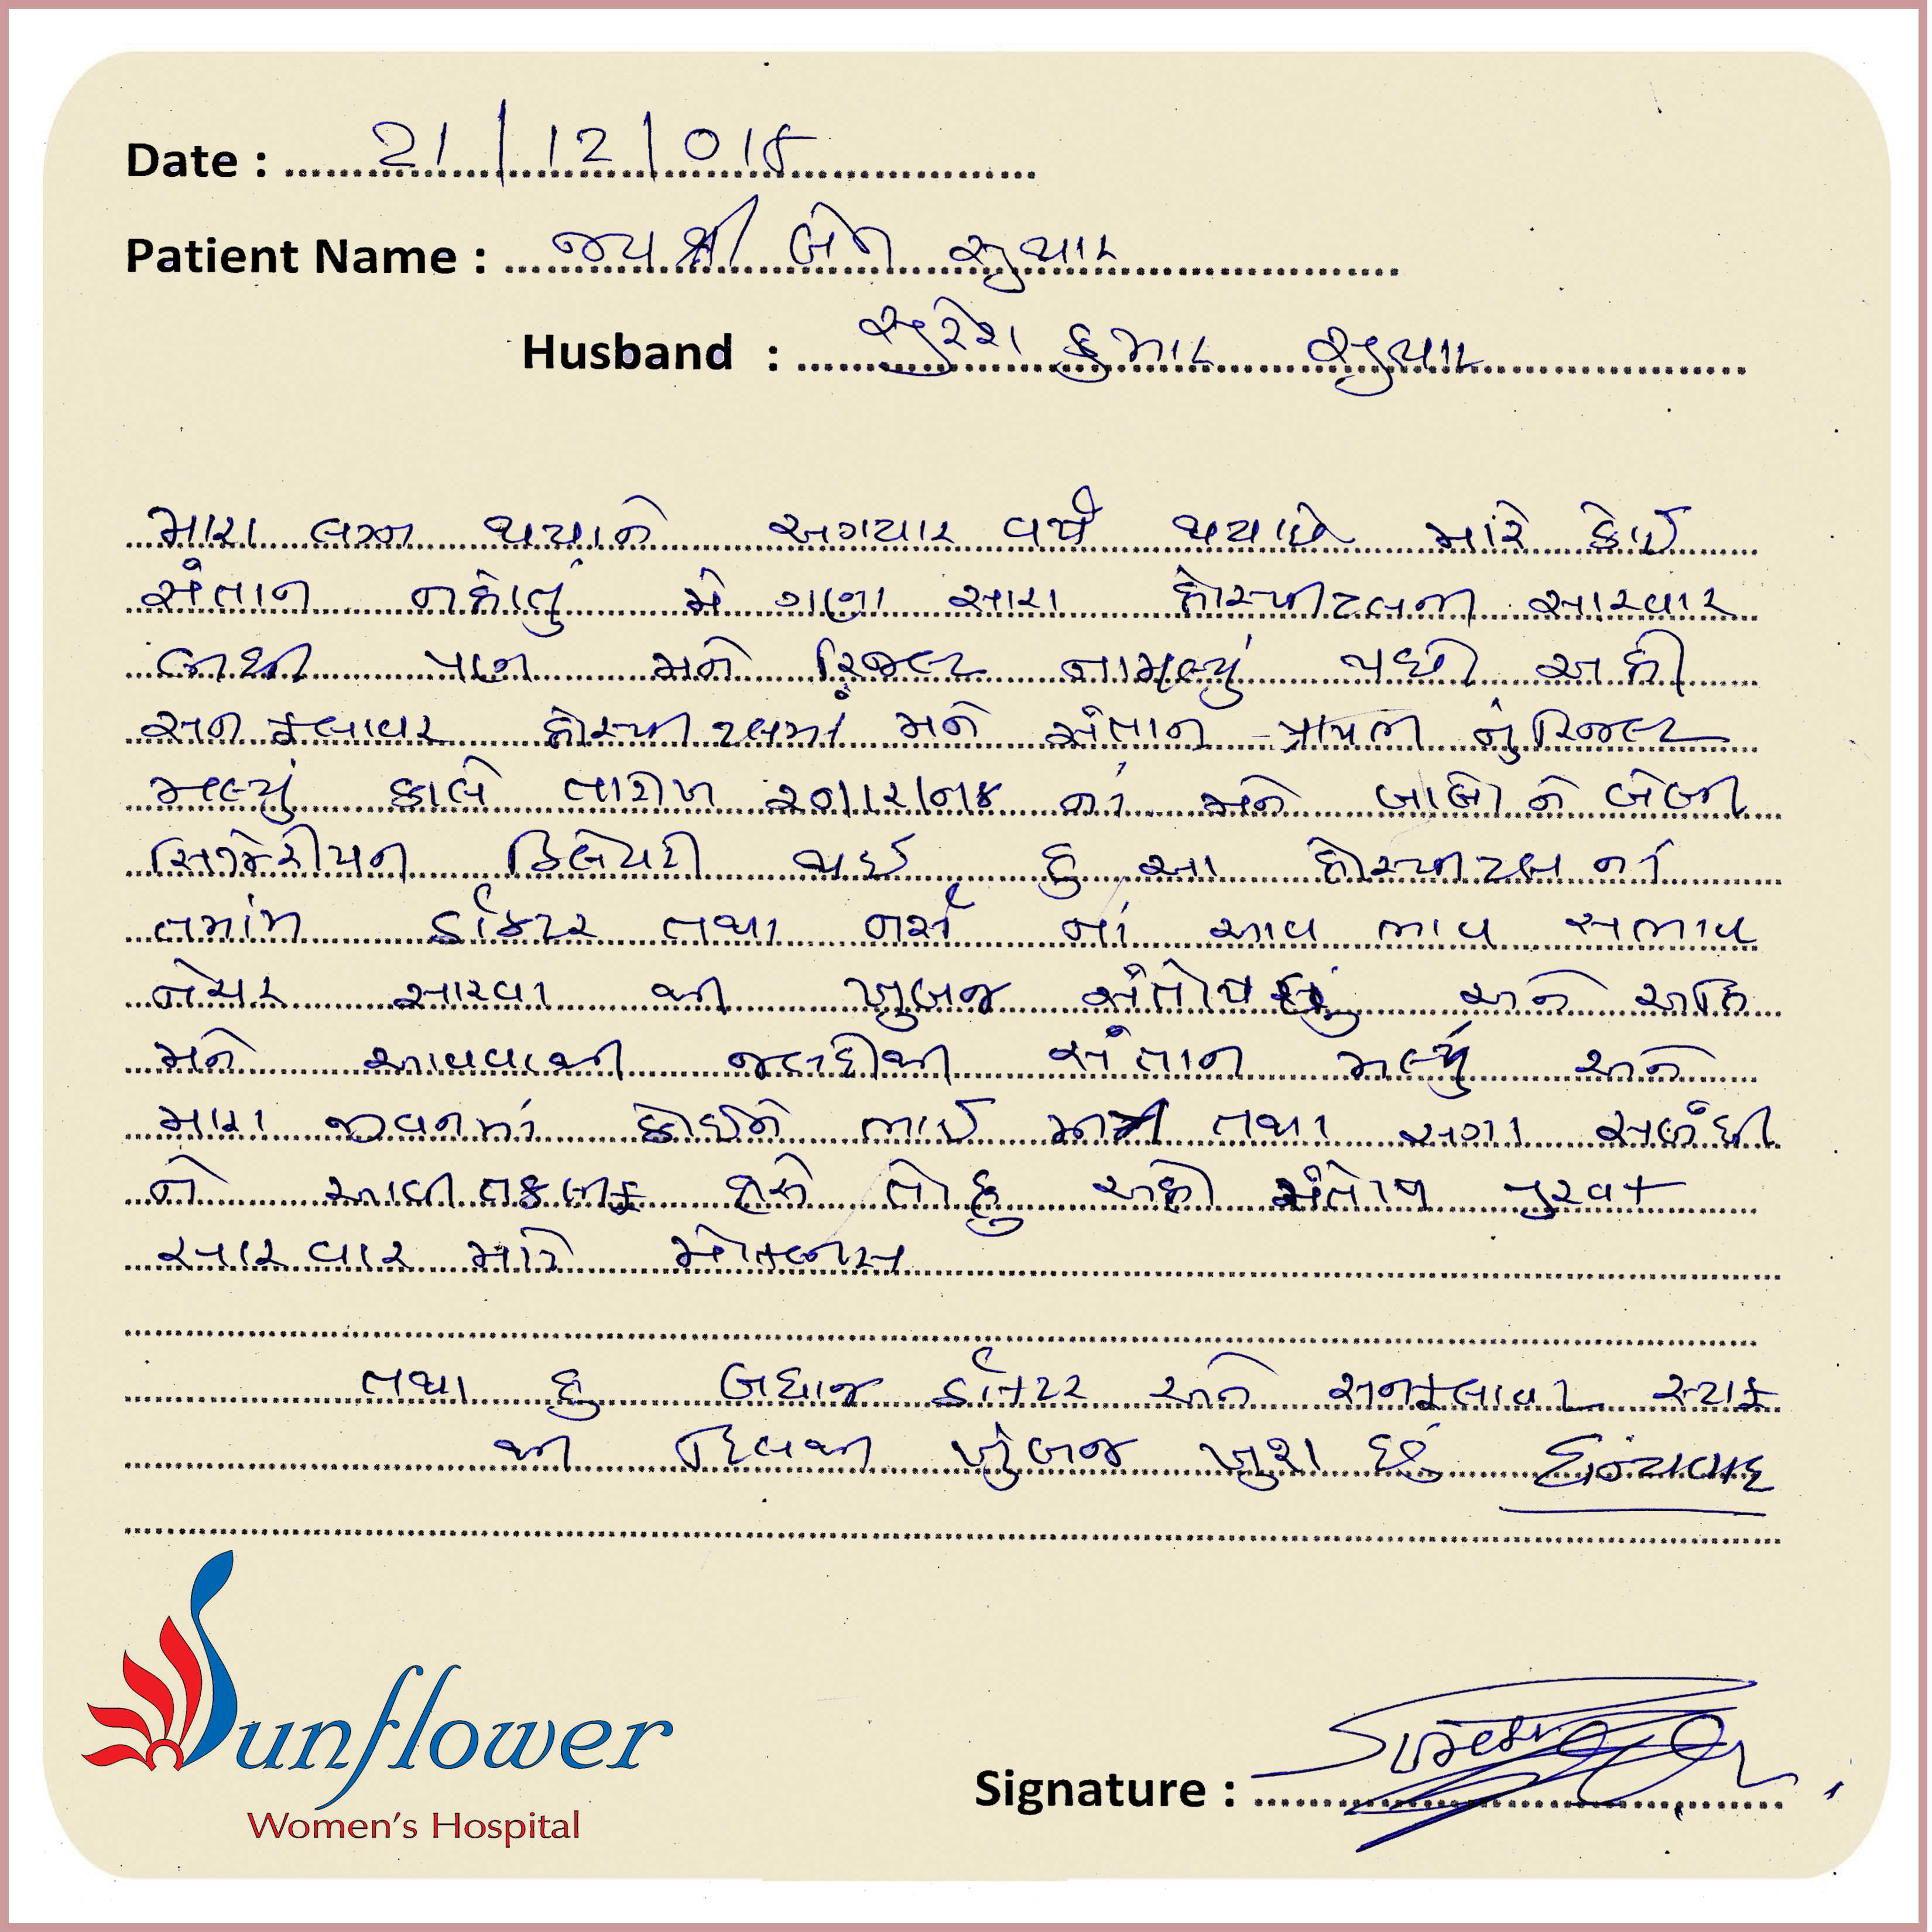 Date : 21/12/018
Patient Name : જયશ્રી બેન સુથાર
Husband : સુરેશ કુમાર સુથાર
મારા લગ્ન થયાને અગયાર વર્ષ થયાછે મારે કોઈ
સંતાન નહોતું મે ગણા સારા હોસ્પીટલની સારવાર
લિધી પણ મને રિજલ્ટ નામલ્યું પછી અહીં
સનફલાવર હોસ્પીટલમાં મને સંતાન પ્રાપ્તી નું રિજલ્ટ
મલ્યું કાલે તારીખ ૨૦/૧૨/૦૧૮ નાં મને બાબો ને બેબી
સિજેરીયન ડિલેવરી થઈ હું આ હોસ્પીટલ નાં
તમાંમ ડૉકટર તથા નર્સો નાં આવ ભાવ સભાવ
નેચર સારવા થી ખુબજ સંતોષ છું અને અહિં
મને આવવાથી જલદીથી સંતાન મલ્યું અને
મારા જીવનમાં કોઈને ભાઈ તથા સગા સબંધી
ને આવી તકલીફ હશે તો હું અહી સંતોષ પુરવક
સારવાર માટે મોકલીસ
તથા હું બધાજ ડૉકટર અને સનફલાવર સ્ટાફ
થી દિલથી ખુબજ ખુશ છું ધન્યવાદ
Sunflower
Women's Hospital
Signature : Suresh